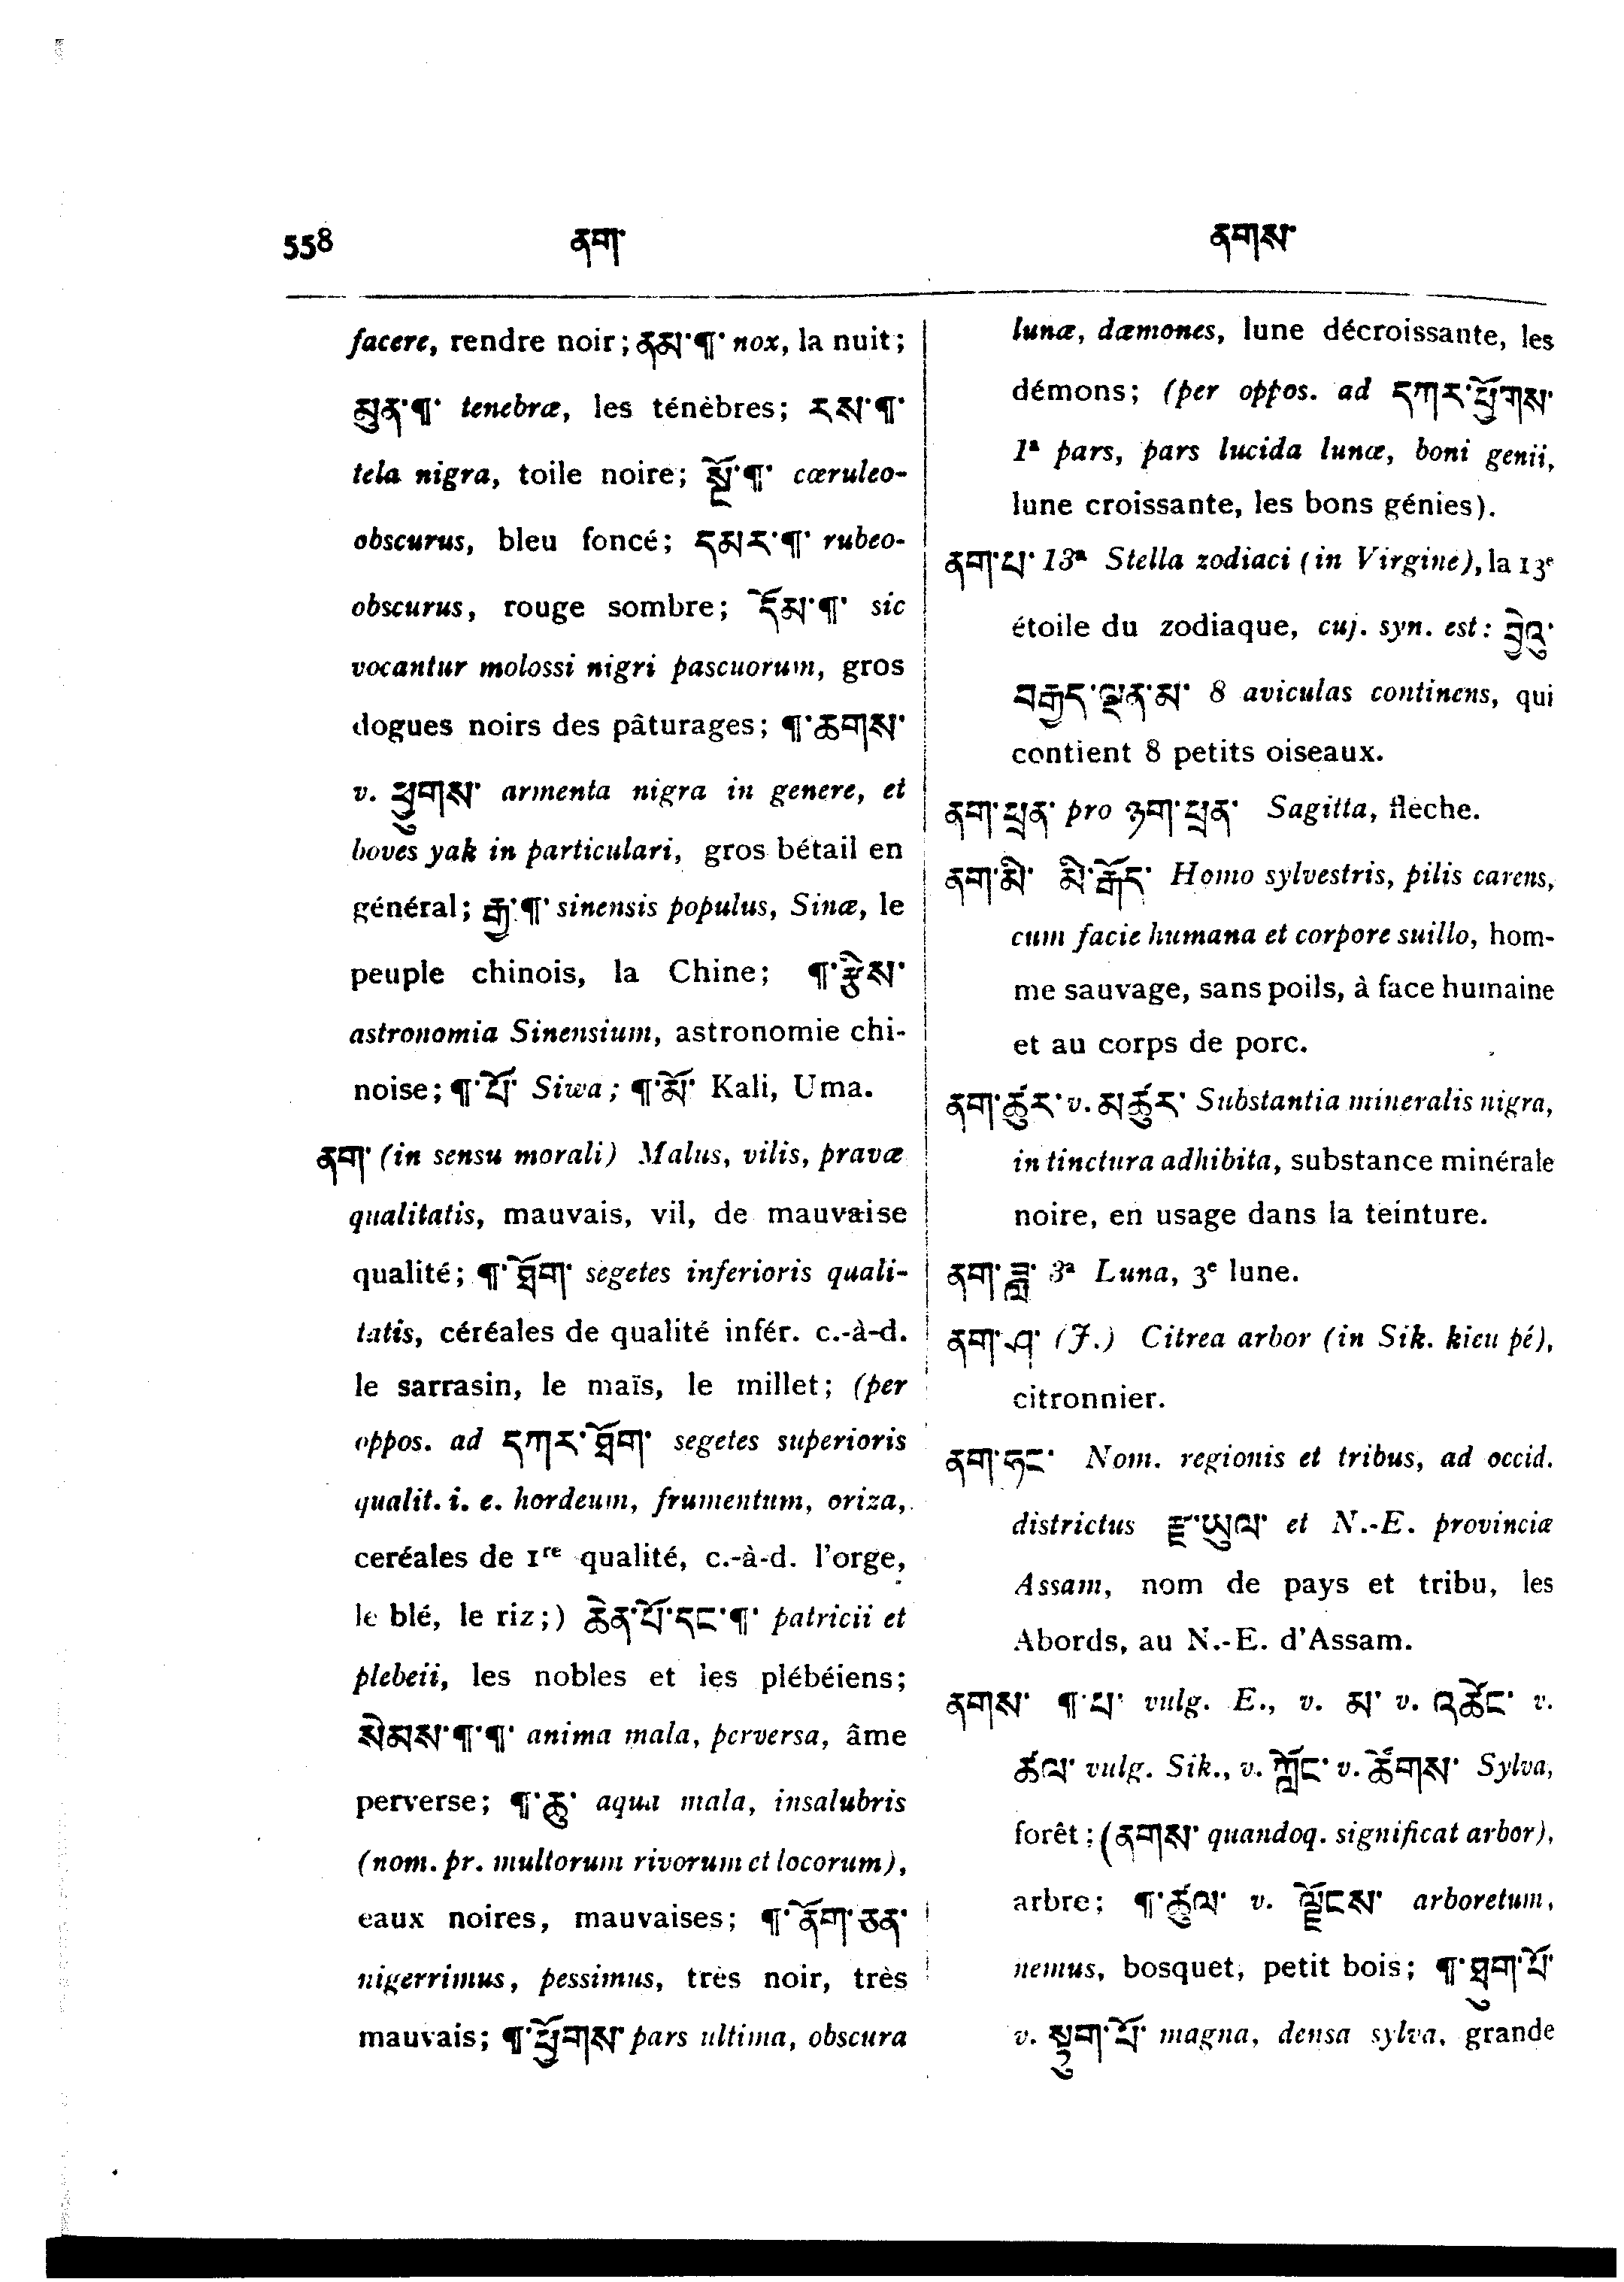 558 ནག་ ནགས་
facere, rendre noir; ནམ་¶་ nox, la nuit;
མུན་¶་ tenebræ, les ténèbres; རས་¶་
tela nigra, toile noire; སྔོ་¶་ cæruleo-
obscurus, bleu foncé; དམར་¶་ rubeo-
obscurus, rouge sombre; དོམ་¶་ sic
vocantur molossi nigri pascuorum, gros
dogues noirs des pâturages; ¶་ཆགས་
v. ཕྱུགས་ armenta nigra in genere, et
boves yak in particulari, gros bétail en
général; རྒྱ་¶་ sinensis populus, Sinæ, le
peuple chinois, la Chine; ¶་རྩིས་
astronomia Sinensium, astronomie chi-
noise; ¶་པོ་ Siwa; ¶་མོ་ Kali, Uma.
ནག་ (in sensu morali) Malus, vilis, pravæ
qualitatis, mauvais, vil, de mauvaise
qualité; ¶་ཐོག་ segetes inferioris quali-
tatis, céréales de qualité infér. c.-à-d.
le sarrasin, le maïs, le millet; (per
oppos. ad དཀར་ཐོག་ segetes superioris
qualit. i. e. hordeum, frumentum, oriza,
ceréales de 1re qualité, c.-à-d. l'orge,
le blé, le riz;) ཆེན་པོ་དང་¶་ patricii et
plebeii, les nobles et les plébéiens;
སེམས་¶་¶་ anima mala, perversa, âme
perverse; ¶་ཆུ་ aqua mala, insalubris
(nom. pr. multorum rivorum et locorum),
eaux noires, mauvaises; ¶་ནོག་ཅན་
nigerrimus, pessimus, très noir, très
mauvais; ¶་ཕྱོགས་ pars ultima, obscura
lunæ, dæmones, lune décroissante, les
démons; (per oppos. ad དཀར་ཕྱོགས་
1a pars, pars lucida lunæ, boni genii,
lune croissante, les bons génies).
ནག་པ་ 13a Stella zodiaci (in Virgine), la 13e
étoile du zodiaque, cuj. syn. est: བྱེའུ་
བརྒྱད་ལྡན་མ་ 8 aviculas continens, qui
contient 8 petits oiseaux.
ནག་ཕྲན་ pro ཉག་ཕྲན་ Sagitta, flèche.
ནག་མི་ མི་རྒོད་ Homo sylvestris, pilis carens,
cum facie humana et corpore suillo, hom-
me sauvage, sans poils, à face humaine
et au corps de porc.
ནག་ཚུར་ v. མཚུར་ Substantia mineralis nigra,
in tinctura adhibita, substance minérale
noire, en usage dans la teinture.
ནག་ཟླ་ 3a Luna, 3e lune.
ནག་ཤ་ (J.) Citrea arbor (in Sik. kieu pé),
citronnier.
ནག་ཧང་ Nom. regionis et tribus, ad occid.
districtus རྫ་ཡུལ་ et N.-E. provinciæ
Assam, nom de pays et tribu, les
Abords, au N.-E. d'Assam.
ནགས་ ¶་པ་ vulg. E., v. མ་ v. འཚོང་ v.
ཚལ་ vulg. Sik., v. ཀློང་ v. ཚོགས་ Sylva,
forêt; (ནགས་ quandoq. significat arbor),
arbre; ¶་ཚུལ་ v. ལྗོངས་ arboretum,
nemus, bosquet, petit bois; ¶་ཐུག་པོ་
v. སྟུག་པོ་ magna, densa sylva, grande